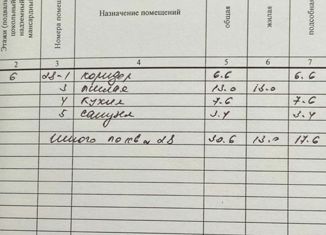 Этажи (подвал
цокольный
надземный
мансардный
Номера помещ
Назначение помещений
общая
жилая
подсобная
2 3 4 5 6 7
6 28-1 коридор 6.6 6.6
3 жилая 13.0 13.0
4 кухня 7.6 7.6
5 санузел 3.4 3.4
Итого по кв № 28 30.6 13.0 17.6